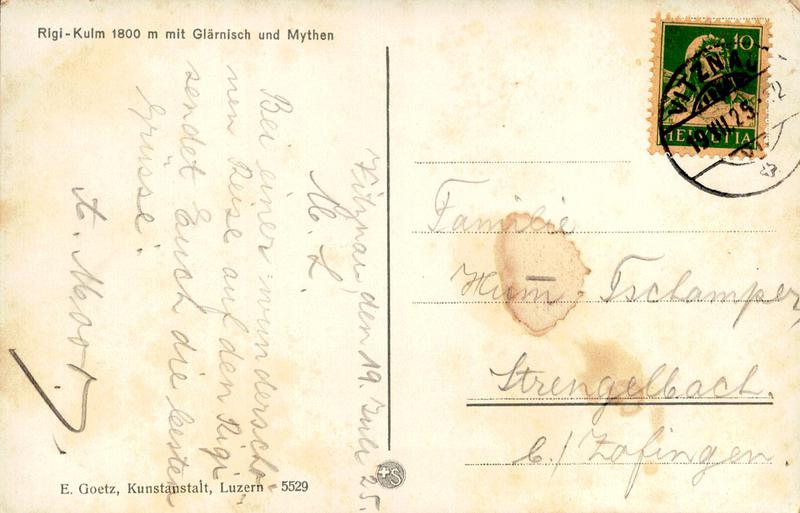 Rigi-Kulm 1800 m mit Glärnisch und Mythen
Vitznau, den 19. Juli 25.
M. L.
Bei einer wunderschö-
nen Reise auf den Rigi
sendet Euch die besten
Grüsse!
A. Moor
10
VITZNAU
19.VII.25
HELVETIA
Familie
Hum-Tschamper
Strengelbach.
b/ Zofingen
E. Goetz, Kunstanstalt, Luzern 5529
S